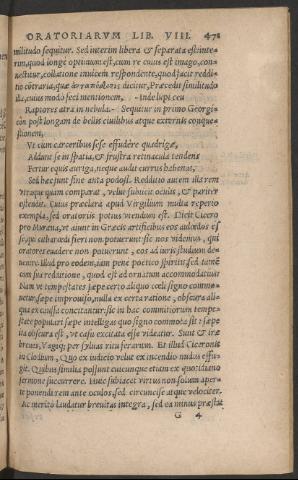 ORATORIARVM LIB. VIII. 471
militudo sequitur. Sed interim libera & separata est: inte-
rim, quod longè optimum est, cum re cuius est imago, con-
nectitur, collatione inuicem respondente, quod facit reddi-
tio cõtraria, quæ dicitur. Præcedit similitudo
illa, cuius modò feci mentionem, - inde lupi ceu
Raptores atra in nebula. - Sequitur in primo Georgi-
côn post longam de bellis ciuilibus atque externis conque-
stionem,
Vt cùm carceribus sese effudere quadrigæ,
Addunt se in spatia, & frustra retinacula tendens
Fertur equis auriga, neque audit currus habenas,
Sed hæ sunt sine antapodosi. Redditio autem illa rem
vtranque quàm comparat, velut subiicit oculis, & pariter
ostendit. Cuius præclara apud Virgilium multa reperio
exempla, sed oratoriis potius vtendum est. Dicit Cicero
pro Murena, vt aiunt in Græcis artificibus eos aulœdos es-
se, qui citharœdi fieri non potuerunt: sic nos videmus, qui
oratores euadere non potuerunt, eos ad iuris studium de-
uenire. Illud pro eodem, iam pene poëtico spiritu, sed tamē
cum sua redditione, quod est ad ornatum accommodatius:
Nam vt tempestates sæpe certo aliquo cœli signo commo-
uentur, sæpe improuiso, nulla ex certa ratione, obscura ali-
qua ex causa concitantur: sic in hac comitiorum tempe-
state populari sæpe intelligas quo signo commota sit: sæpe
ita obscura est, vt casu excitata esse videatur. Sunt & illæ
breues, Vagíque per syluas ritu ferarum. Et illud Ciceronis
in Clodium, Quo ex iudicio velut ex incendio nudus effu-
git. Quibus similia possunt cuicunque etiam ex quotidiano
sermone succurrere. Huic subiacet virtus non solum aper-
te ponendi rem ante oculos, sed circuncisè atque velociter.
Ac meritò laudatur breuitas integra, sed ea minus præstat
G 4